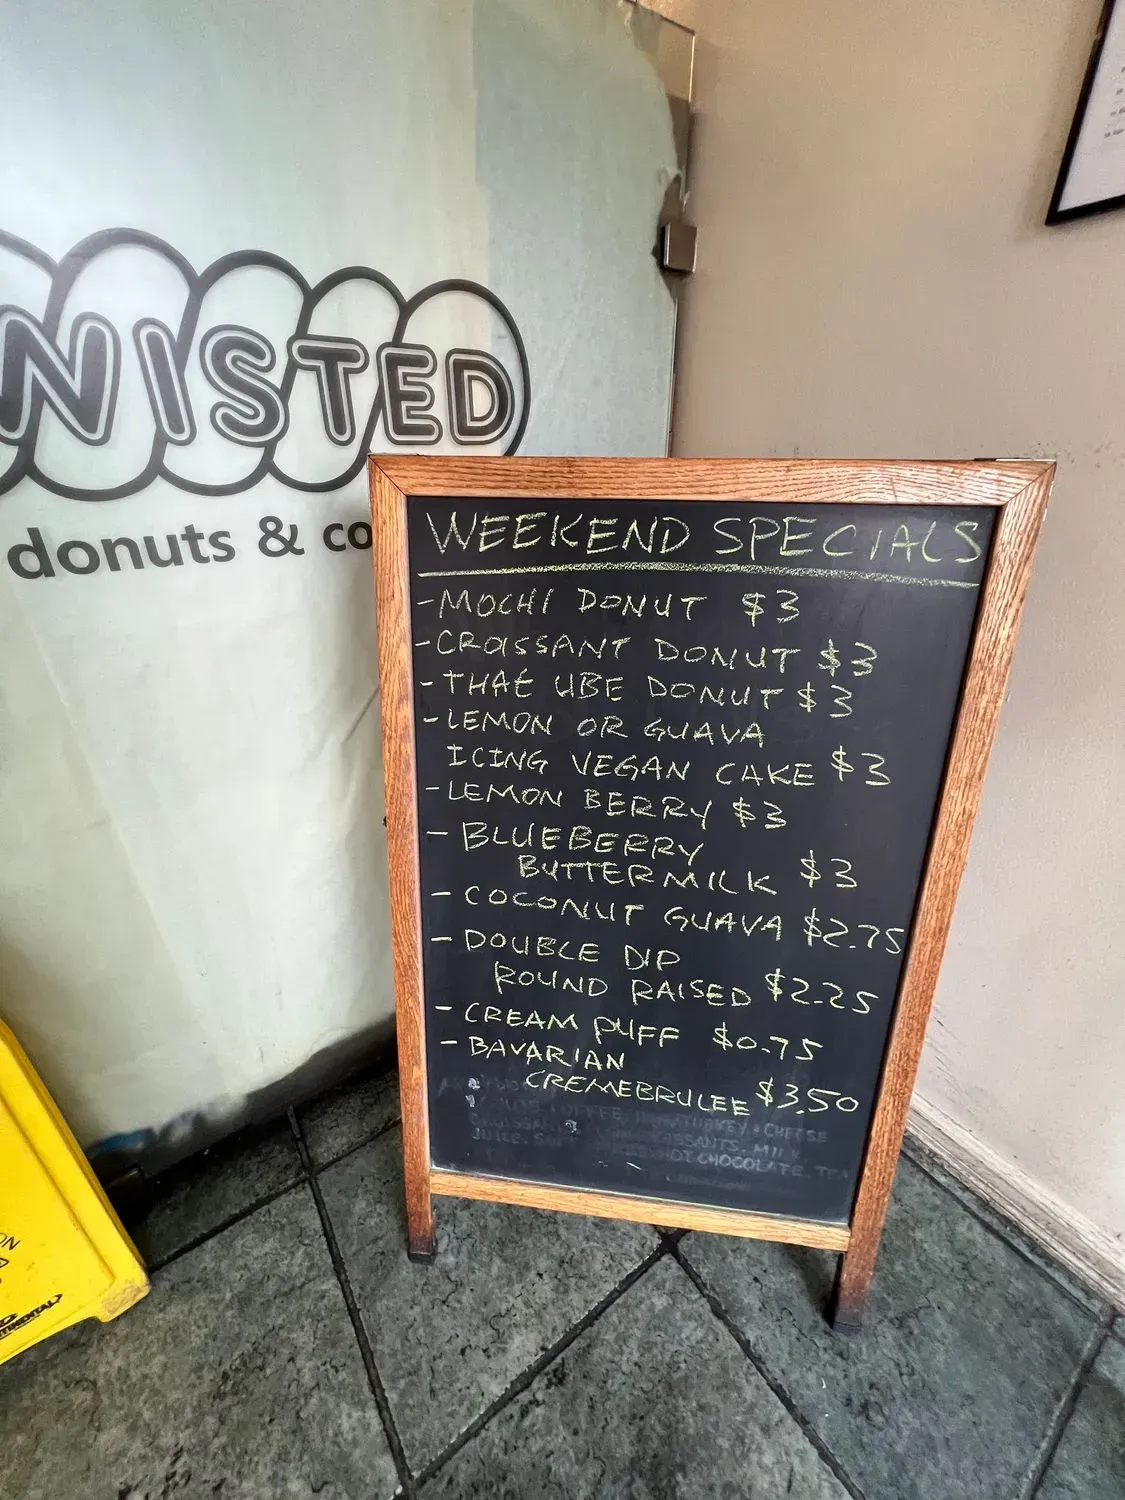 NISTED
donuts & co
WEEKEND SPECIALS
-MOCHI DONUT $3
-CROISSANT DONUT $3
-THAE UBE DONUT $3
-LEMON OR GUAVA
ICING VEGAN CAKE $3
-LEMON BERRY $3
- BLUEBERRY
BUTTERMILK $3
- COCONUT GUAVA $2.75
- DOUBLE DIP
ROUND RAISED $2.25
- CREAM PUFF $0.75
- BAVARIAN
CREMEBRULEE $3.50
COFFEE, TURKEY & CHEESE
JUICE, CROISSANTS, MILK
HOT CHOCOLATE, TEA